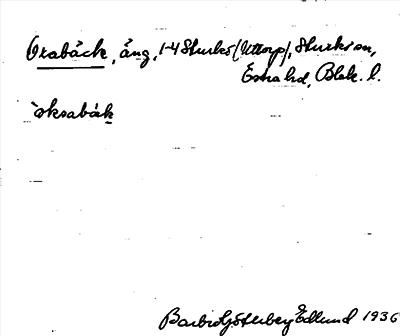 Oxabäck, äng, 1-4 Sturkö (Uttorp), Sturkö sn,
Östra hd, Blek. l.
`oksabäk
Barbro Götlberg Edlund 1936